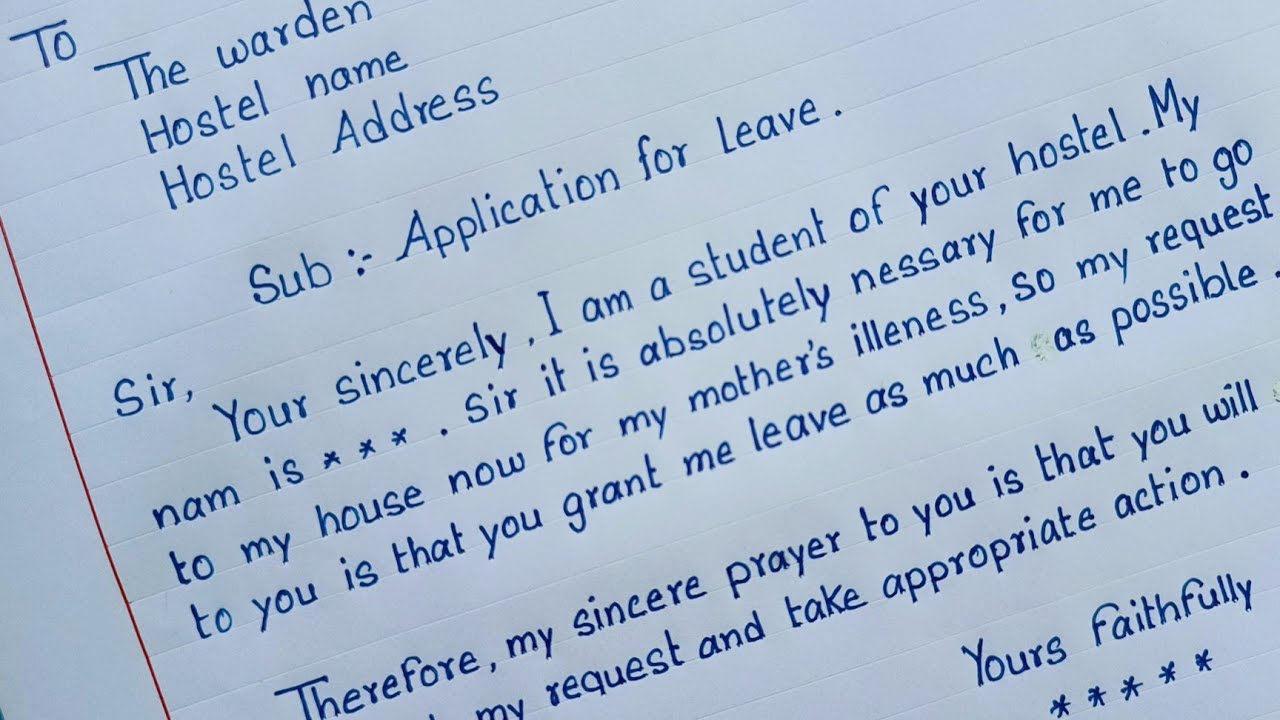 To
The warden
Hostel name
Hostel Address
Sub :- Application for leave.
Sir,
Your sincerely, I am a student of your hostel. My
nam is * * * . Sir it is absolutely nessary for me to go
to my house now for my mother's illeness, so my request
to you is that you grant me leave as much as possible.
Therefore, my sincere prayer to you is that you will
my request and take appropriate action.
Yours Faithfully
* * * * *